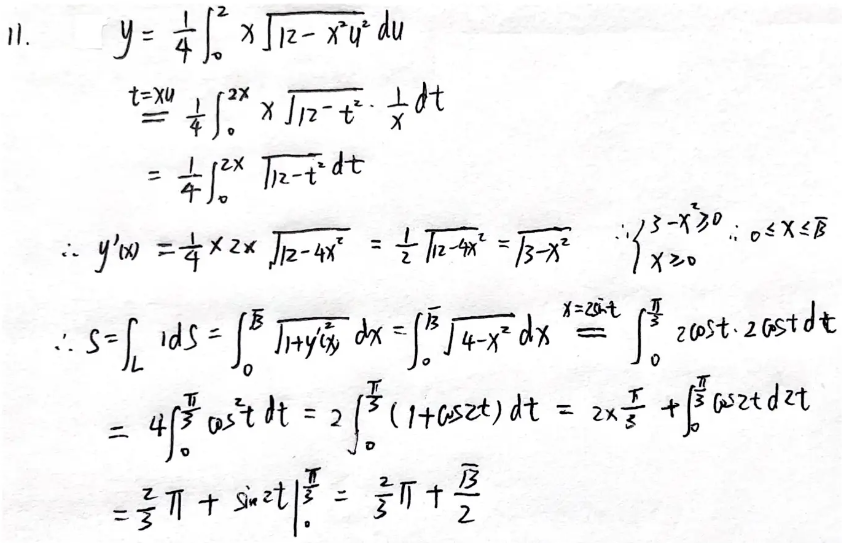 11. y = 1/4 ∫₀² x √(12 - x²u²) du
t=xu = 1/4 ∫₀^{2x} x √(12 - t²) · 1/x dt
= 1/4 ∫₀^{2x} √(12-t²) dt
∴ y'(x) = 1/4 × 2 × √(12-4x²) = 1/2 √(12-4x²) = √(3-x²) ∴ { 3-x² ≥ 0 x ≥ 0 ∴ 0 ≤ x ≤ √3
∴ S = ∫_L 1ds = ∫₀^{√3} √(1+y'²(x)) dx = ∫₀^{√3} √(4-x²) dx x=2sint = ∫₀^{π/3} 2cost · 2cost dt
= 4∫₀^{π/3} cos²t dt = 2 ∫₀^{π/3} (1+cos2t) dt = 2×π/3 + ∫₀^{π/3} cos2t d2t
= 2/3 π + sin2t |₀^{π/3} = 2/3 π + √3/2